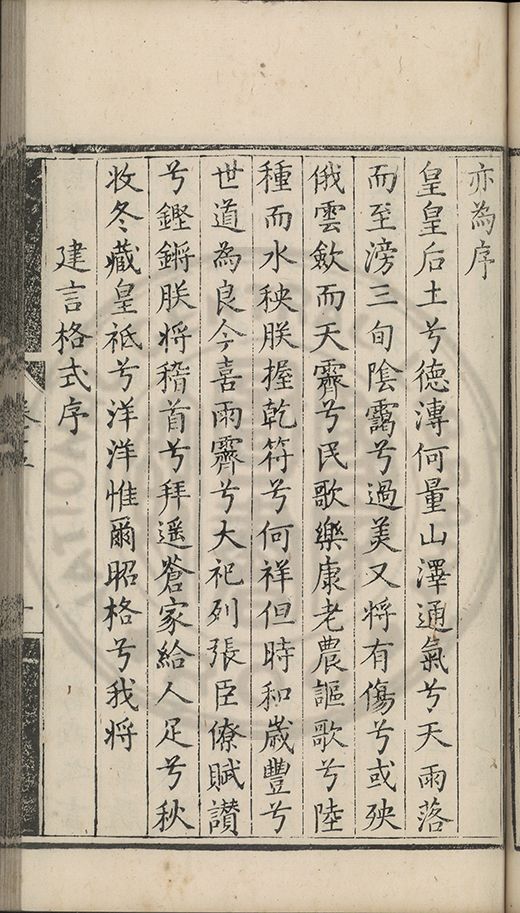 亦為序
皇皇后土兮德溥何量山澤通氣兮天雨落
而至滂三旬陰靄兮過美又將有傷兮或殃
俄雲歛而天霽兮民歌樂康老農謳歌兮陸
種而水秧朕握乾符兮何祥但時和歲豐兮
世道為良今喜雨霽兮大祀列張臣僚賦讃
兮鏗鏘朕将稽首兮拜遥蒼家給人足兮秋
收冬藏皇祇兮洋洋惟爾昭格兮我將
建言格式序